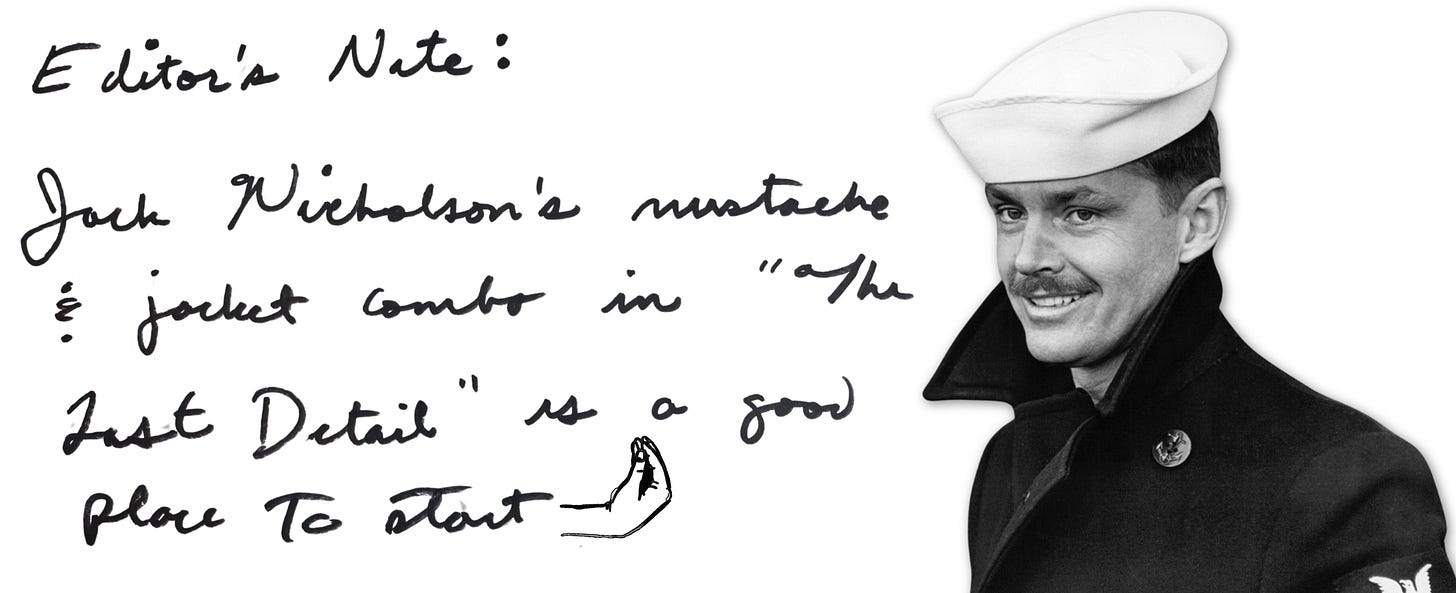 Editor's Note:
Jack Nicholson's mustache
& jacket combo in "The
Last Detail" is a good
place To start